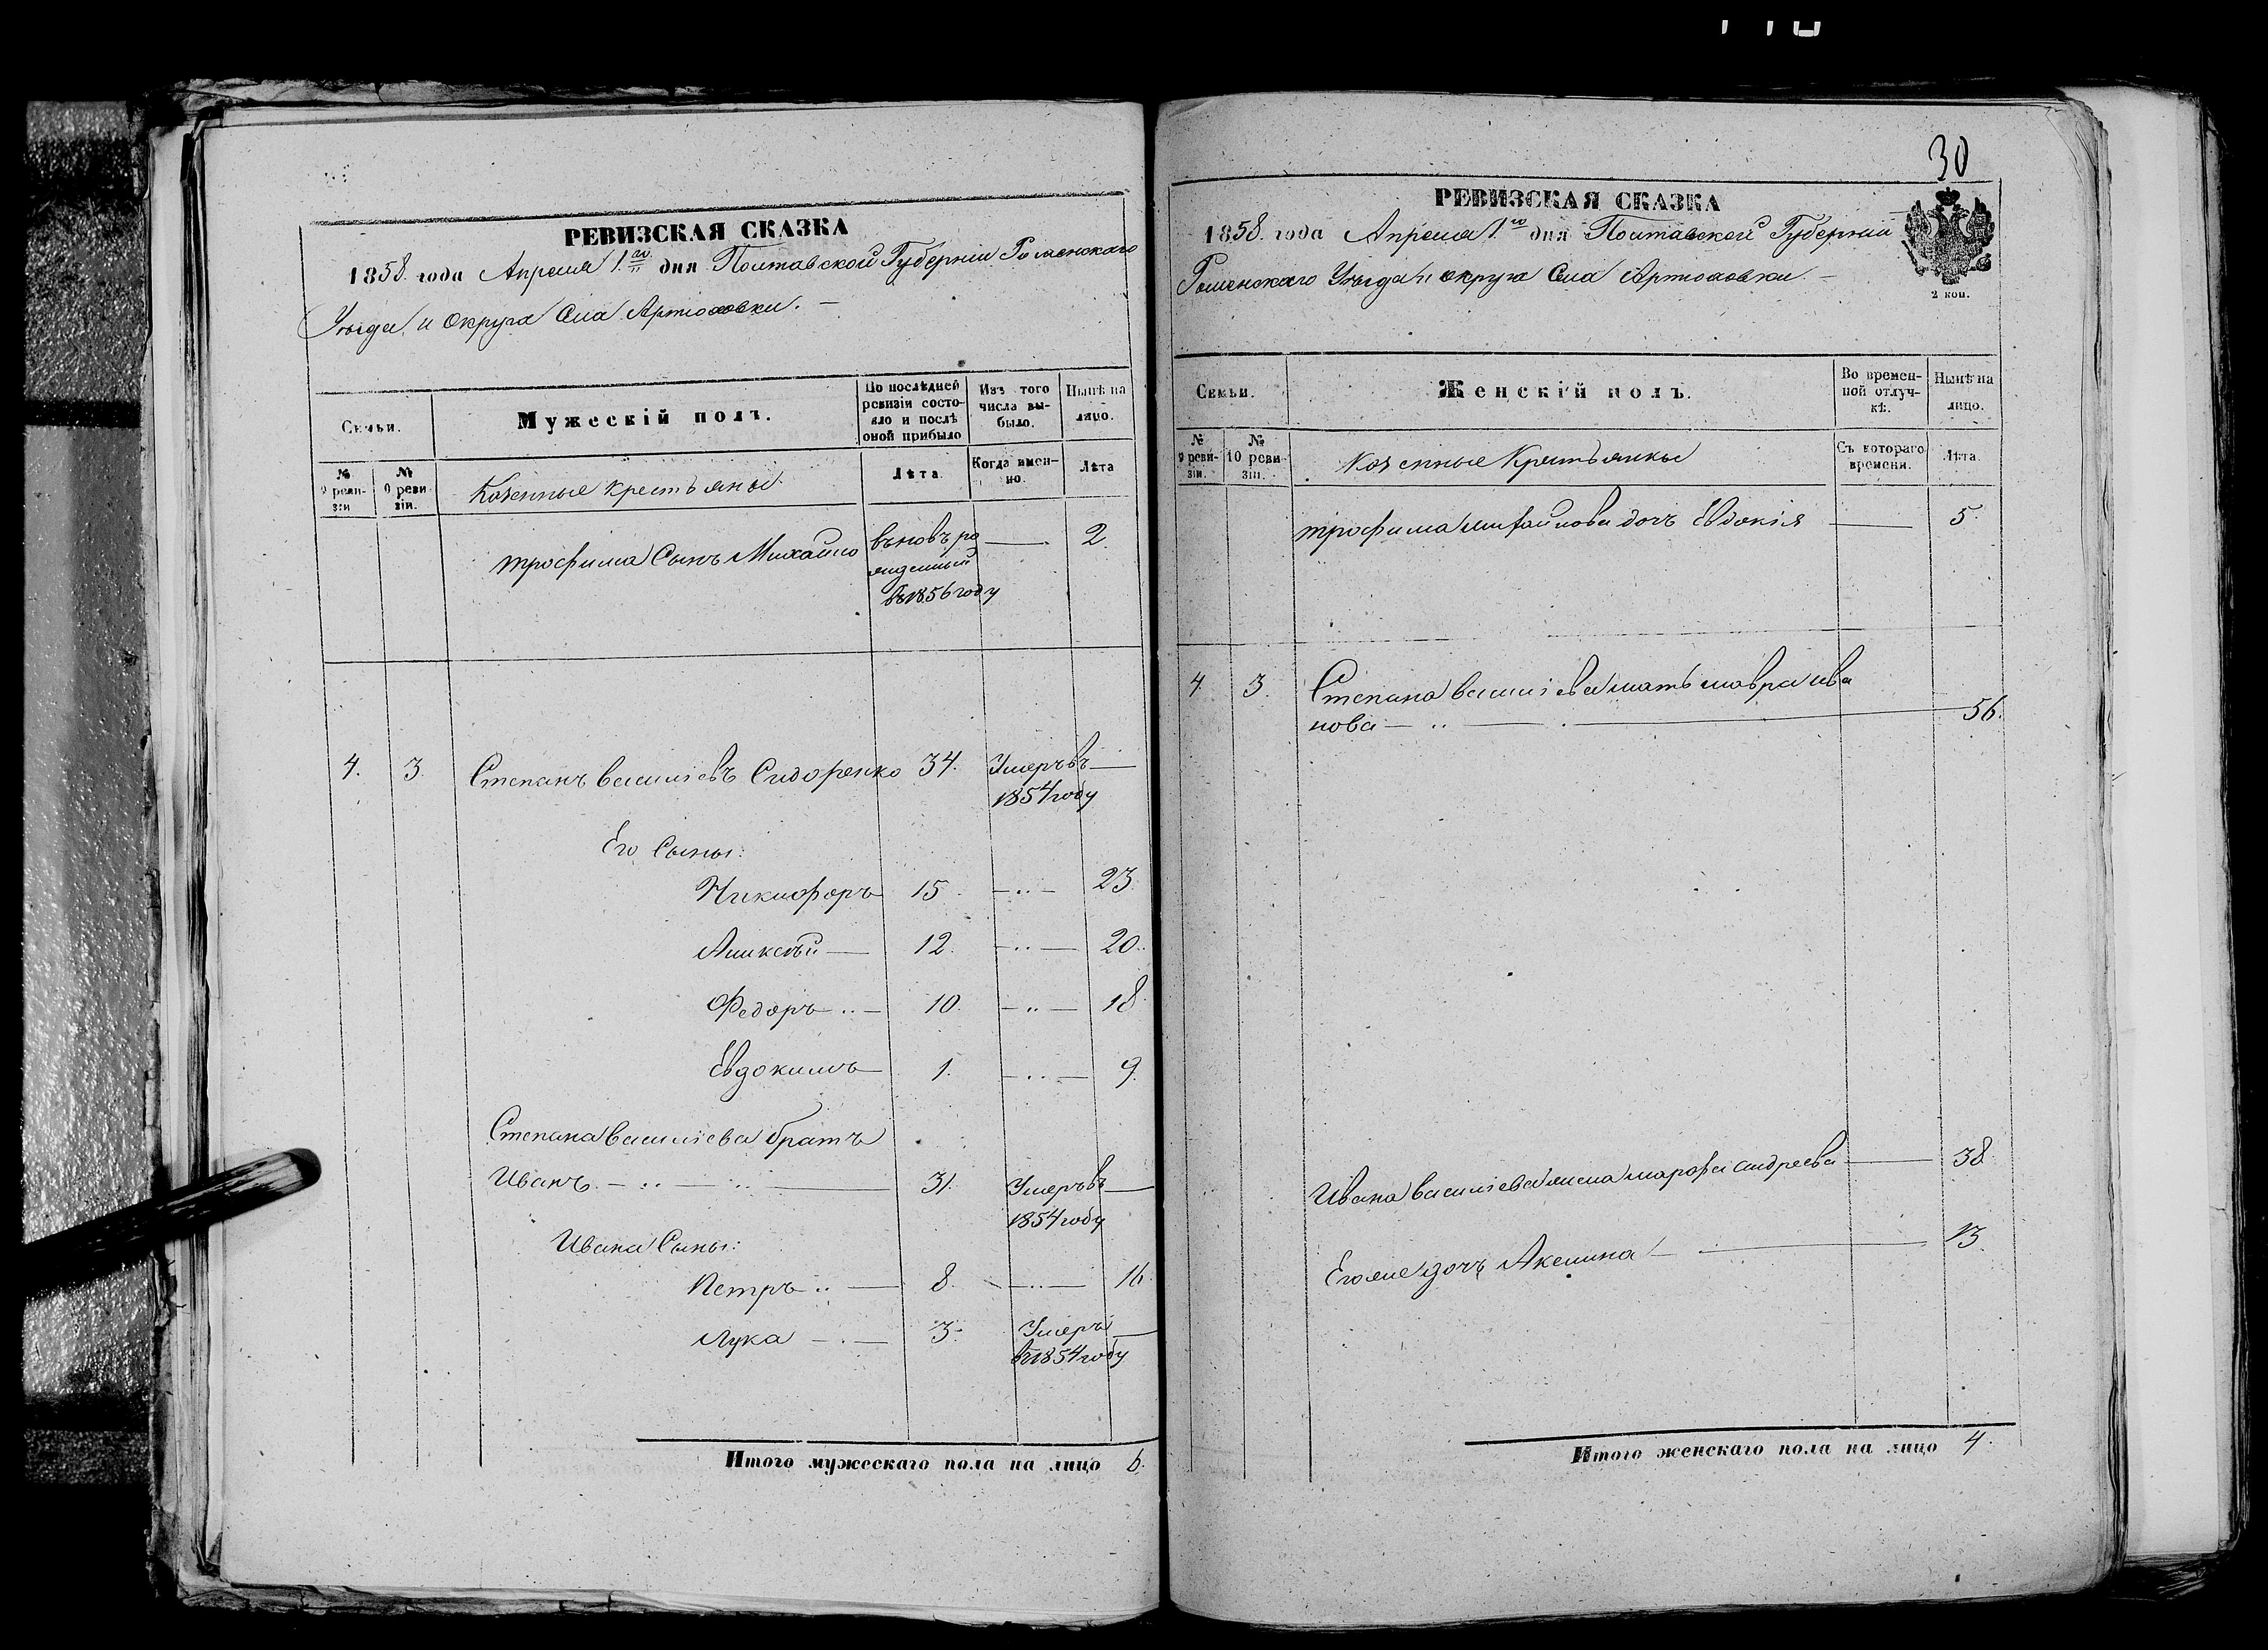 РЕВИЗСКАЯ СКАЗКА
1858. года Апреля 1.го дня Полтавской Губерніи Роменскаго
Уѣзда и Округа Села Артюховки. —
Семьи.
Мужескій полъ.
По послѣдней ревизіи состояло и послѣ оной прибыло
Изъ того числа выбыло.
Нынѣ на лицо.
№ 9 ревизіи
№ 10 ревизіи.
Казенные крестьяны
Лѣта.
Когда именно.
Лѣта
трофима Сынъ Михайло въновъро — 2.
жденный
въ1856году
4. 3. Степанъ васильевъ Сидоренко 34. Умеръвъ —
1854году
Его Сыны:
Никифоръ 15. — 23.
Аликсѣй — 12. — 20.
Федоръ — 10. — 18.
Евдокимъ — 1. — 9.
Степана васильева братъ
Иванъ — 31. Умеръвъ —
1854году
Ивана Сыны:
Петръ — 8. — 16.
Лука — 3. Умеръ —
въ1854году
Итого мужескаго пола на лицо 6.
30
РЕВИЗСКАЯ СКАЗКА
1858. года Апреля 1.го дня Полтавской Губерніи
Роменскаго Уѣзда и округа Села Артюховки. —
2 коп.
Семьи.
Женскій полъ.
Во временной отлучкѣ.
Нынѣ на лицо.
№ 9 ревизіи.
№ 10 ревизіи.
Казенные Крестьянки
Съ котораго времени.
Лѣта.
трофима михайлова дочъ Евдокія — 5.
4. 3. Степана васильева мать мавра ива
нова — 56.
Ивана васильева жена марфа андреева — 38.
Его же дочъ Аксинна — 13.
Итого женскаго пола на лицо 4.